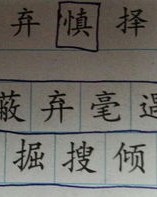 弃慎择
蔽弃毫
掘搜倾